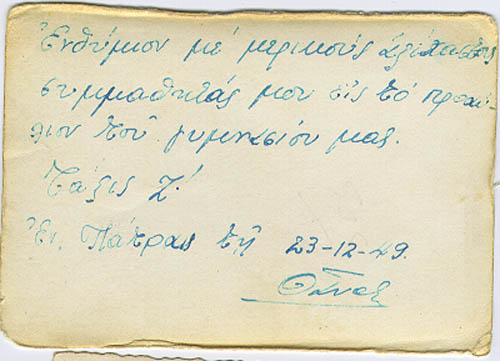 Ἐνθύμιον μέ μερικούς ἀξέχαστους
συμμαθητάς μου εἰς τό προαύ-
λιον τοῦ γυμνασίου μας.
Τάξις Ζ΄
Ἐν Πάτραις τῇ 23-12-49.